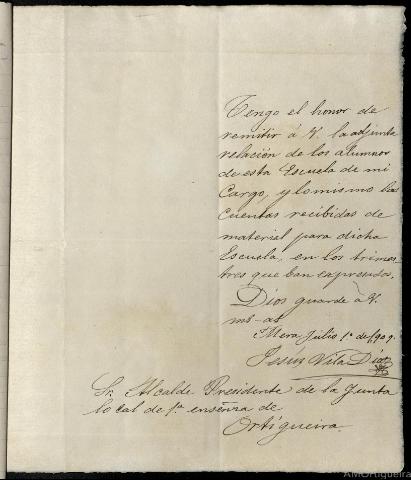 Tengo el honor de
remitir á V. la adjunta
relación de los alumnos
de esta Escuela de mi
Cargo, y lo mismo las
Cuentas recibidas de
material para dicha
Escuela, en los trimes-
tres que ban expresados.
Dios guarde á V.
ms-as
Mera Julio 1º de 1909.
Jesus Vila Díaz
Sr. Alcalde Presidente de la Junta
local de 1ª enseñza de
Ortigueira.
AMOrtigueira